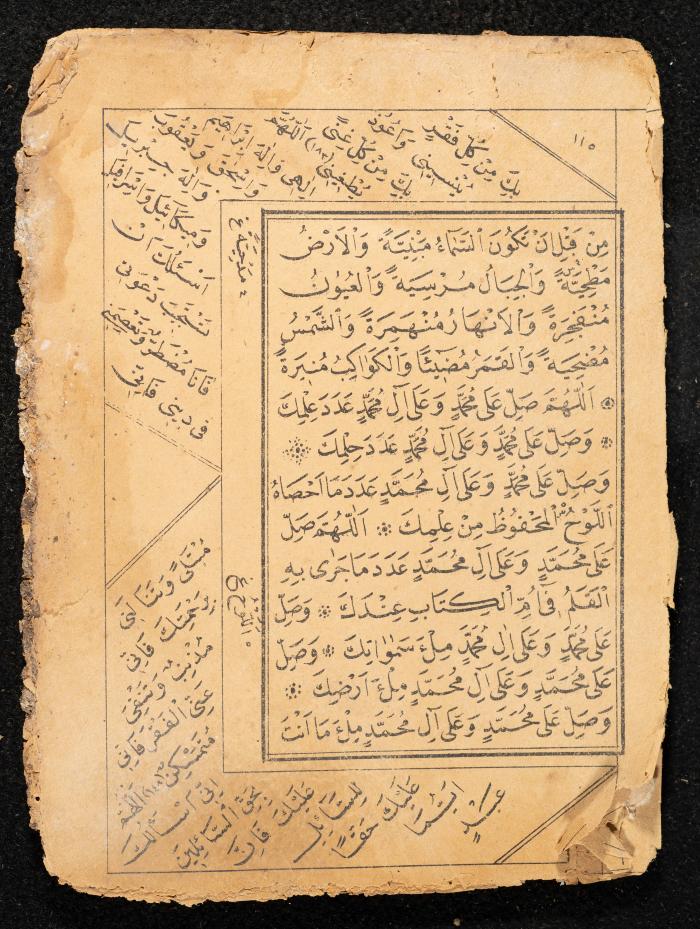 ١١٥
مِنْ قَبْلِ اَنْ تَكُونَ السَّمَاءُ مَبْنِيَّةً وَالْاَرْضُ
مَطْحِيَّةً وَالْجِبَالُ مُرْسِيَةً وَالْعُيُونُ
مُنْفَجِرَةً وَالْاَنْهَارُ مُنْهَمِرَةً وَالشَّمْسُ
مُضْحِيَةً وَالْقَمَرُ مُضِيْئًا وَالْكَوَاكِبُ مُنِيرَةً
اَللّٰهُمَّ صَلِّ عَلٰى مُحَمَّدٍ وَعَلٰى اٰلِ مُحَمَّدٍ عَدَدَ عِلْمِكَ
وَصَلِّ عَلٰى مُحَمَّدٍ وَعَلٰى اٰلِ مُحَمَّدٍ عَدَدَ حِلْمِكَ
وَصَلِّ عَلٰى مُحَمَّدٍ وَعَلٰى اٰلِ مُحَمَّدٍ عَدَدَ مَا اَحْصَاهُ
اللَّوْحُ الْمَحْفُوظُ مِنْ عِلْمِكَ اَللّٰهُمَّ صَلِّ
عَلٰى مُحَمَّدٍ وَعَلٰى اٰلِ مُحَمَّدٍ عَدَدَ مَا جَرٰى بِهِ
الْقَلَمُ فِي اُمِّ الْكِتَابِ عِنْدَكَ وَصَلِّ
عَلٰى مُحَمَّدٍ وَعَلٰى اٰلِ مُحَمَّدٍ مِلْءَ سَمٰوَاتِكَ وَصَلِّ
عَلٰى مُحَمَّدٍ وَعَلٰى اٰلِ مُحَمَّدٍ مِلْءَ اَرْضِكَ
وَصَلِّ عَلٰى مُحَمَّدٍ وَعَلٰى اٰلِ مُحَمَّدٍ مِلْءَ مَا اَنْتَ
بِكَ مِنْ كُلِّ فَقْرٍ
يُنْسِينِي وَاَعُوذُ
بِكَ مِنْ كُلِّ غِنًى
يُطْغِينِي (١٨٣) اَللّٰهُمَّ
اِلٰهِي وَاِلٰهَ اِبْرَاهِيمَ
وَاِسْحٰقَ وَيَعْقُوبَ
وَاِلٰهَ جِبْرِيلَ
وَمِيكَائِيلَ وَاِسْرَافِيلَ
اَسْئَلُكَ اَنْ
تَسْتَجِيبَ دَعْوَتِي
فَاَنَا مُضْطَرٌّ وَتَعْصِمَنِي
فِي دِينِي فَاِنِّي
مُبْتَلًى وَتَنَالَنِي
بِرَحْمَتِكَ فَاِنِّي
مُذْنِبٌ وَتَنْفِيَ
عَنِّي الْفَقْرَ فَاِنِّي
مُتَمَسْكِنٌ اَللّٰهُمَّ
اِنِّي اَسْاَلُكَ
بِحَقِّ السَّائِلِينَ
عَلَيْكَ فَاِنَّ
لِلسَّائِلِ
عَلَيْكَ حَقًّا
اَيُّمَا
عَبْدٍ